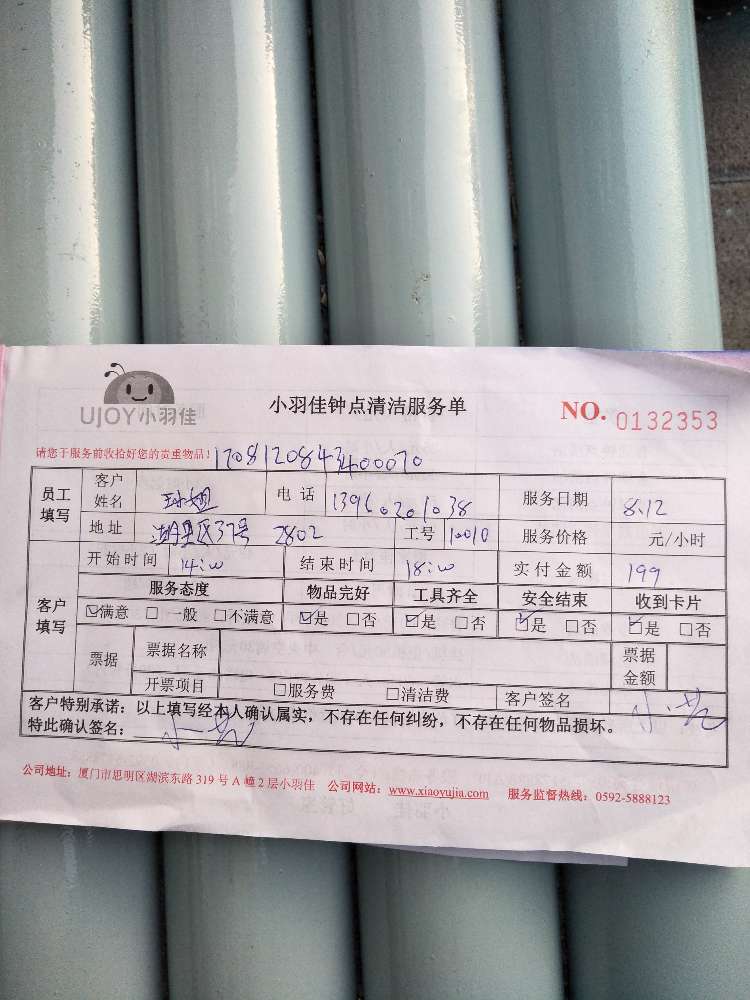 UJOY小羽佳
小羽佳钟点清洁服务单
NO. 0132353
请您于服务前收拾好您的贵重物品！ 1708120843400070
员工填写 客户姓名 电话 13960201038 服务日期 8.12
地址 湖里区37号 2802 工号 10010 服务价格 元/小时
客户填写 开始时间 14:00 结束时间 18:00 实付金额 199
服务态度 物品完好 工具齐全 安全结束 收到卡片
☑满意 □一般 □不满意 ☑是 □否 ☑是 □否 ☑是 □否 ☑是 □否
票据 票据名称 票据金额
开票项目 □服务费 □清洁费 客户签名
客户特别承诺：以上填写经本人确认属实，不存在任何纠纷，不存在任何物品损坏。
特此确认签名：
公司地址：厦门市思明区湖滨东路 319 号 A 幢 2 层小羽佳 公司网站：www.xiaoyujia.com 服务监督热线：0592-5888123